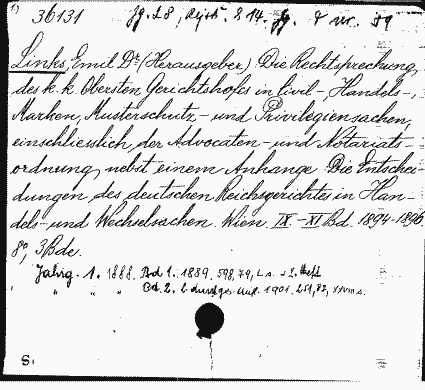 36131
Links, Emil Dr. (Herausgeber) Die Rechtsprechung
des k. k. Obersten Gerichtshofes in Civil-, Handels-,
Marken, Musterschutz- und Privilegiensachen,
einschliesslich der Advocaten- und Notariats-
ordnung nebst einem Anhange Die Entschei-
dungen des deutschen Reichsgerichtes in Han-
dels- und Wechselsachen. Wien IX-XI Bd. 1894-1896.
8°, 3 Bde.
Jahrg. 1. 1888. Bd 1. 1889. 598, 79, L s. 2. Heft
Bd. 2. 2 Aufl. 1901. 251, 82, XXVIII s.
S.